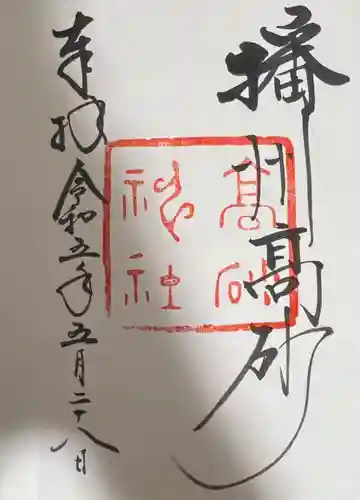 播州高砂
高砂
神社
奉拝
令和五年五月二十八日